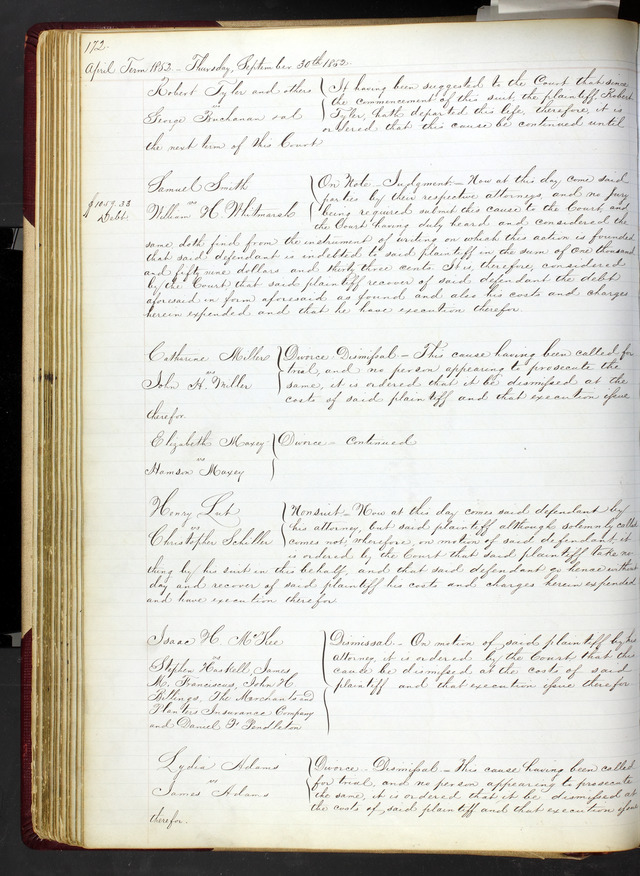 172
April Term 1852 - Thursday, September 30th 1852
Robert Tyler and others
vs
George Buchanan et al
It having been suggested to the Court that since
the commencement of this suit, the plaintiff, Robert
Tyler, hath departed this life, therefore, it is
ordered that this cause be continued until
the next term of this Court
$1059.33
Debt.
Samuel Smith
vs
William H. Whitmarsh
On Note - Judgment - Now at this day come said
parties by their respective attorneys, and no jury
being required submit this cause to the Court, and
the Court having duly heard and considered the
same, doth find from the instrument of writing on which this action is founded
that said defendant is indebted to said plaintiff in the sum of One thousand
and fifty nine dollars and thirty three cents. It is, therefore, considered
by the Court that said plaintiff recover of said defendant the debt
aforesaid in form aforesaid as found and also his costs and charges
herein expended and that he have execution therefor.
Catharine Miller
vs
John H. Miller
Divorce - Dismissal - This cause having been called for
trial, and no person appearing to prosecute the
same, it is ordered that it be dismissed at the
costs of said plaintiff and that execution issue
therefor.
Elizabeth Maxey
vs
Hamson Maxey
Divorce - Continued
Henry Lut
vs
Christopher Schiller
Nonsuit - Now at this day comes said defendant by
his attorney, but said plaintiff although solemnly called
comes not, wherefore, on motion of said defendant, it
is ordered by the Court that said plaintiff take no-
thing by his suit in this behalf, and that said defendant go hence without
day and recover of said plaintiff his costs and charges herein expended
and have execution therefor
Isaac H. McKee
vs
Stephen Haskell, James
M. Franciscus, John H.
Billings, The Merchants and
Planters Insurance Company
and Daniel F. Pendleton
Dismissal - On motion of said plaintiff by his
attorney, it is ordered by the Court that this
cause be dismissed at the cost of said
plaintiff and that execution issue therefor
Lydia Adams
vs
James Adams
Divorce - Dismissal - This cause having been called
for trial, and no person appearing to prosecute
the same, it is ordered that it be dismissed at
the costs of said plaintiff and that execution issue
therefor.